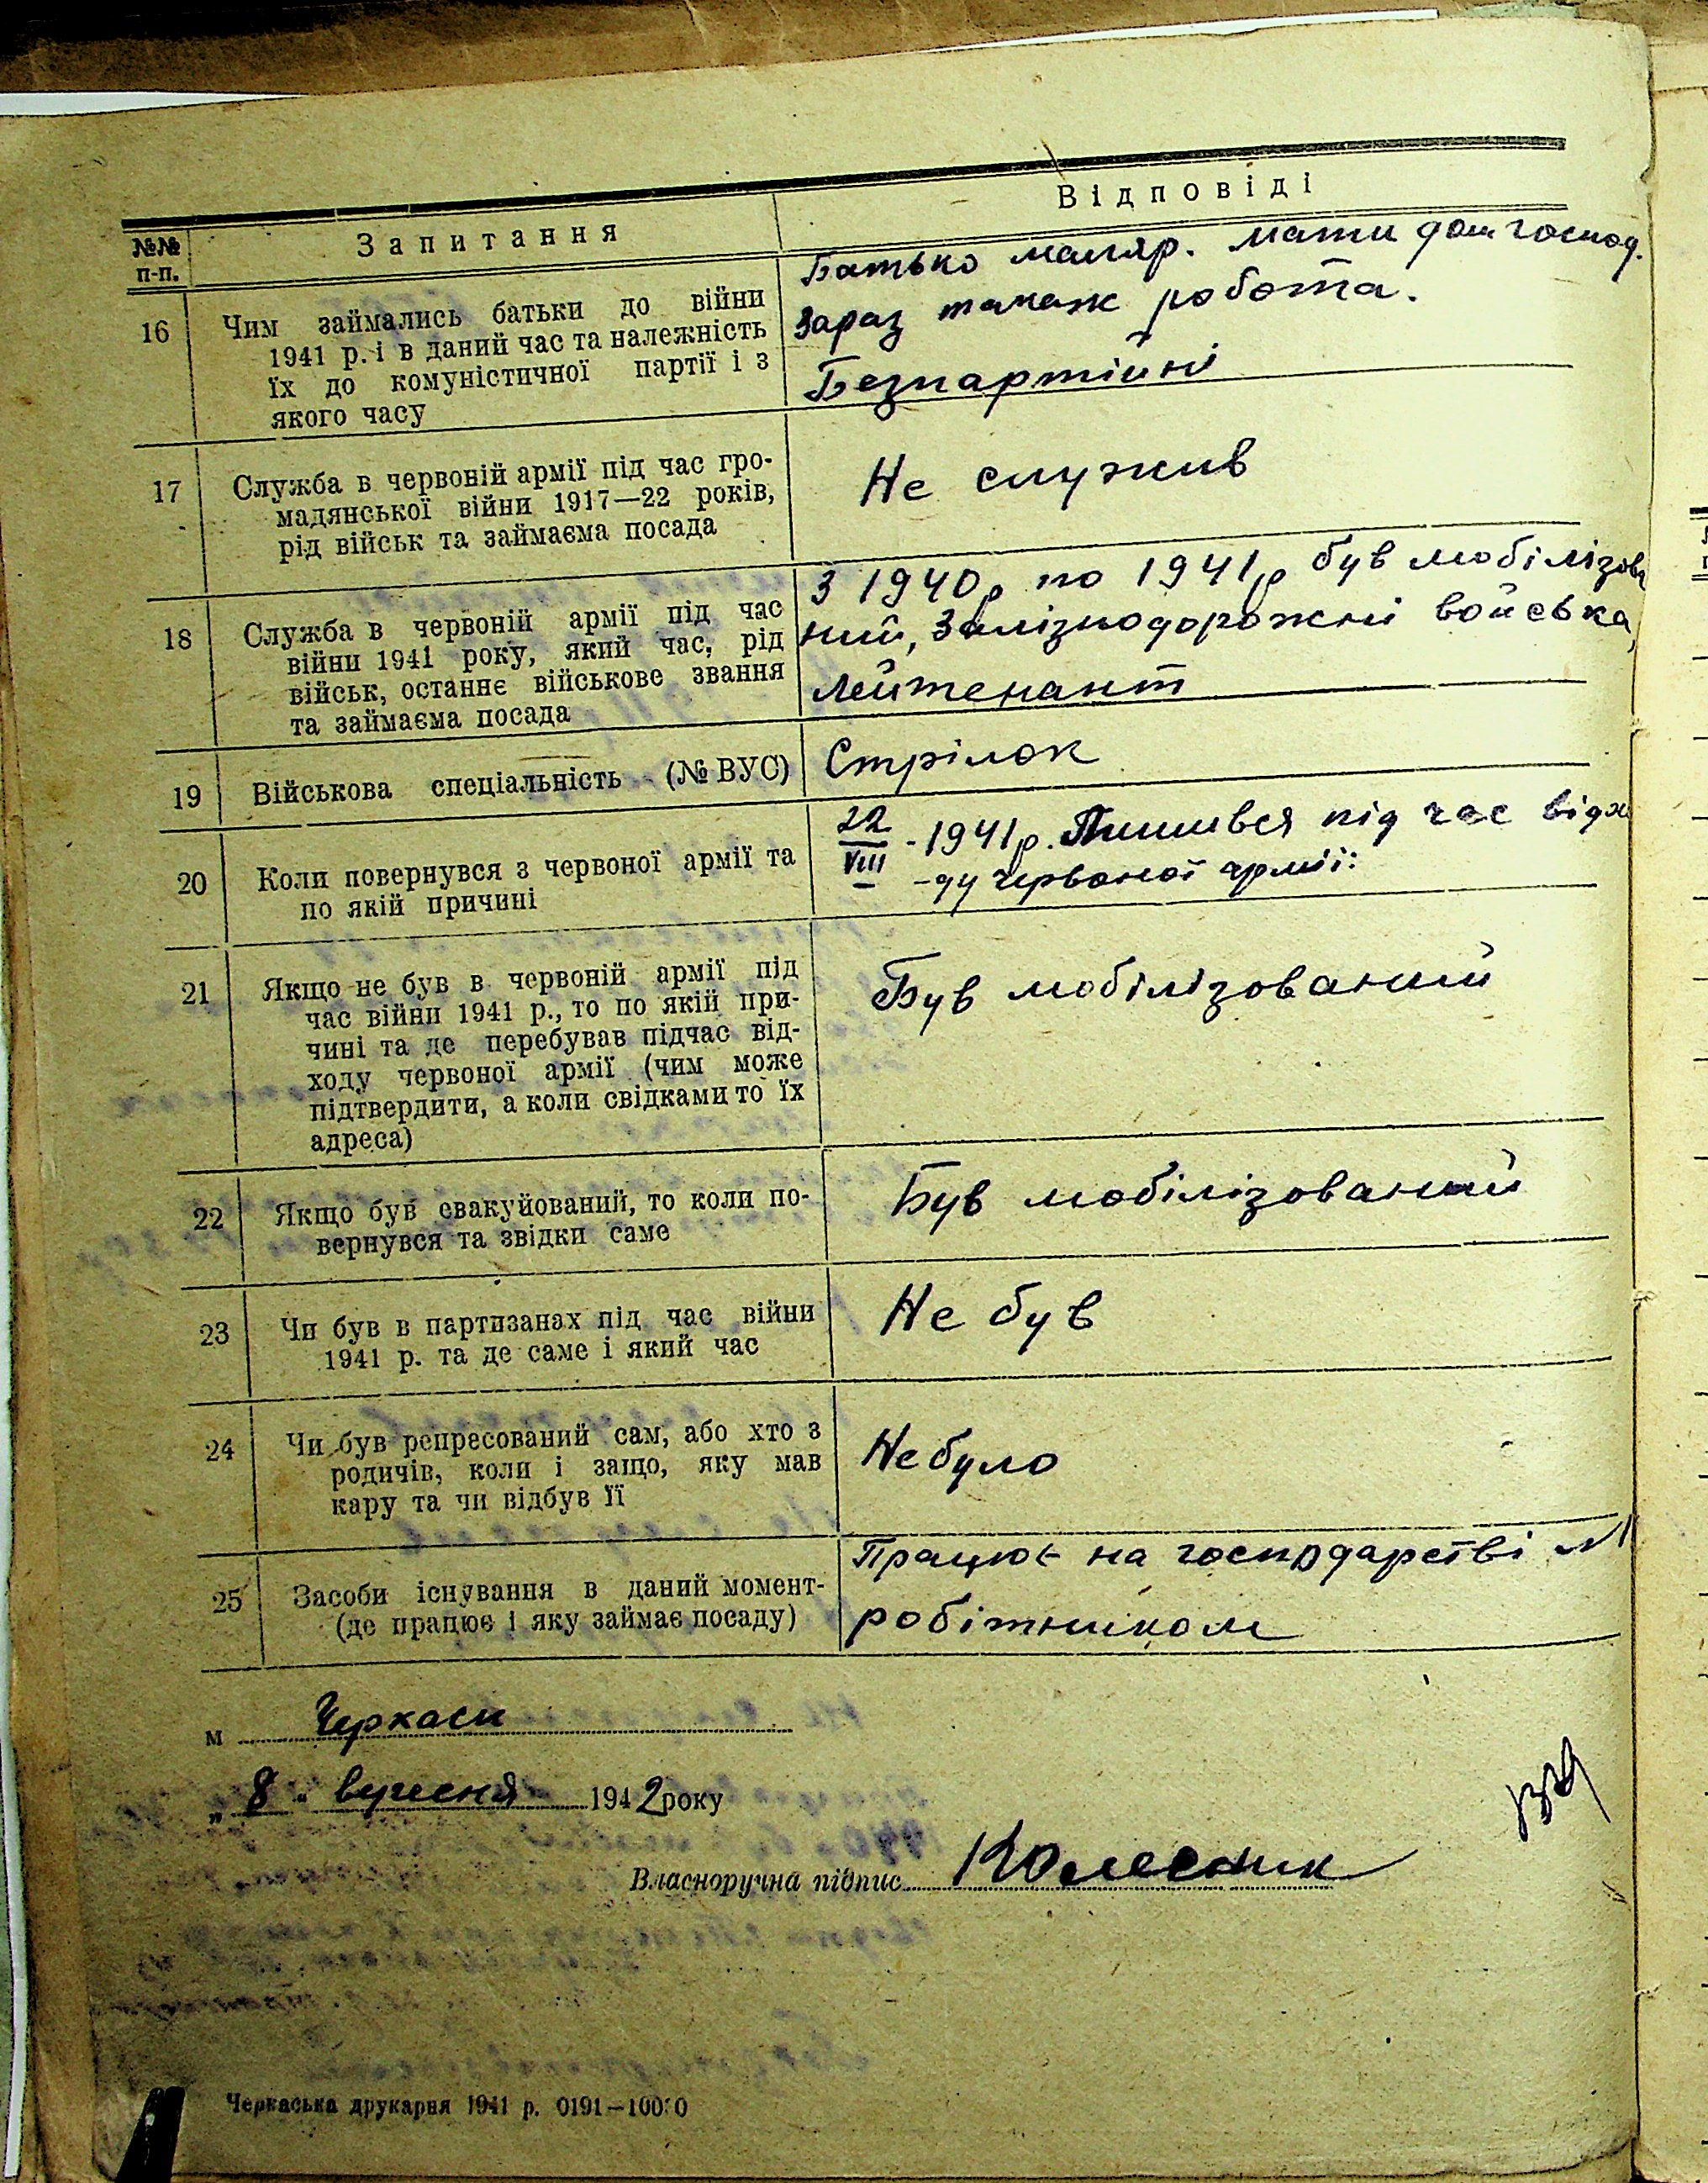 №№ п-п.
Запитання
Відповіді
16
Чим займались батьки до війни
1941 р. і в даний час та належність
їх до комуністичної партії і з
якого часу
Батько маляр. Мати дом господ.
Зараз такаж робота.
Безпартійні
17
Служба в червоній армії під час гро-
мадянської війни 1917—22 років,
рід військ та займаєма посада
Не служив
18
Служба в червоній армії під час
війни 1941 року, який час, рід
військ, останнє військове звання
та займаєма посада
З 1940р по 1941р був мобілізова
ний, Залізнодорожні войська,
Лейтенант
19
Військова спеціальність (№ ВУС)
Стрілок
20
Коли повернувся з червоної армії та
по якій причині
22
VIII - 1941р. Лишився під час відхо
-ду червоної армії:
21
Якщо не був в червоній армії під
час війни 1941 р., то по якій при-
чині та де перебував підчас від-
ходу червоної армії (чим може
підтвердити, а коли свідками то їх
адреса)
Був мобілізований
22
Якщо був евакуйований, то коли по-
вернувся та звідки саме
Був мобілізований
23
Чи був в партизанах під час війни
1941 р. та де саме і який час
Не був
24
Чи був репресований сам, або хто з
родичів, коли і защо, яку мав
кару та чи відбув її
Небуло
25
Засоби існування в даний момент-
(де працює і яку займає посаду)
Працює на господарстві №1
робітником
м Черкаси
„ 8 " вересня 1942 року
Власноручна підпис Колесник
Черкаська друкарня 1941 р. 0191—10000